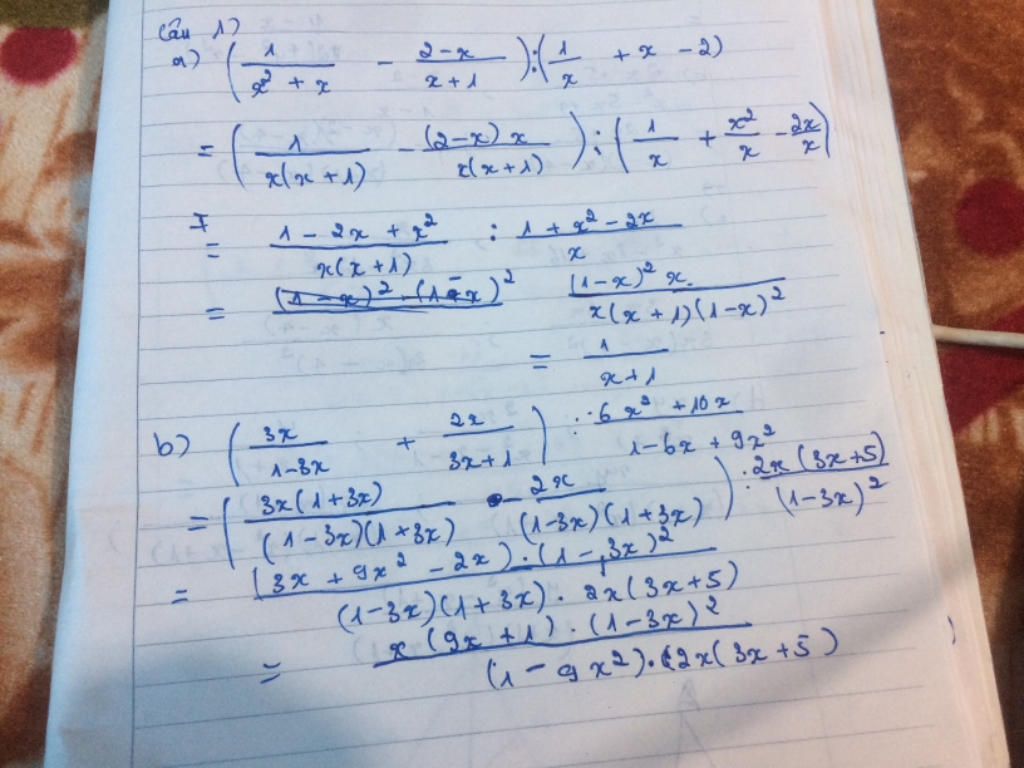 Câu 1)
a) (1/(x² + x) - (2-x)/(x+1)) : (1/x + x - 2)
= (1/(x(x+1)) - ((2-x)x)/(x(x+1))) : (1/x + x²/x - 2x/x)
= (1 - 2x + x²)/(x(x+1)) : (1 + x² - 2x)/x
= ((1-x)² x)/(x(x+1)(1-x)²)
= 1/(x+1)
b) (3x/(1-3x) + 2x/(3x+1)) : (6x² + 10x)/(1-6x+9x²)
= ((3x(1+3x))/((1-3x)(1+3x)) - 2x/((1-3x)(1+3x))) : (2x(3x+5))/((1-3x)²)
= ((3x + 9x² - 2x) . (1-3x)²)/((1-3x)(1+3x) . 2x(3x+5))
= (x(9x+1) . (1-3x)²)/((1-9x²) . (2x(3x+5))